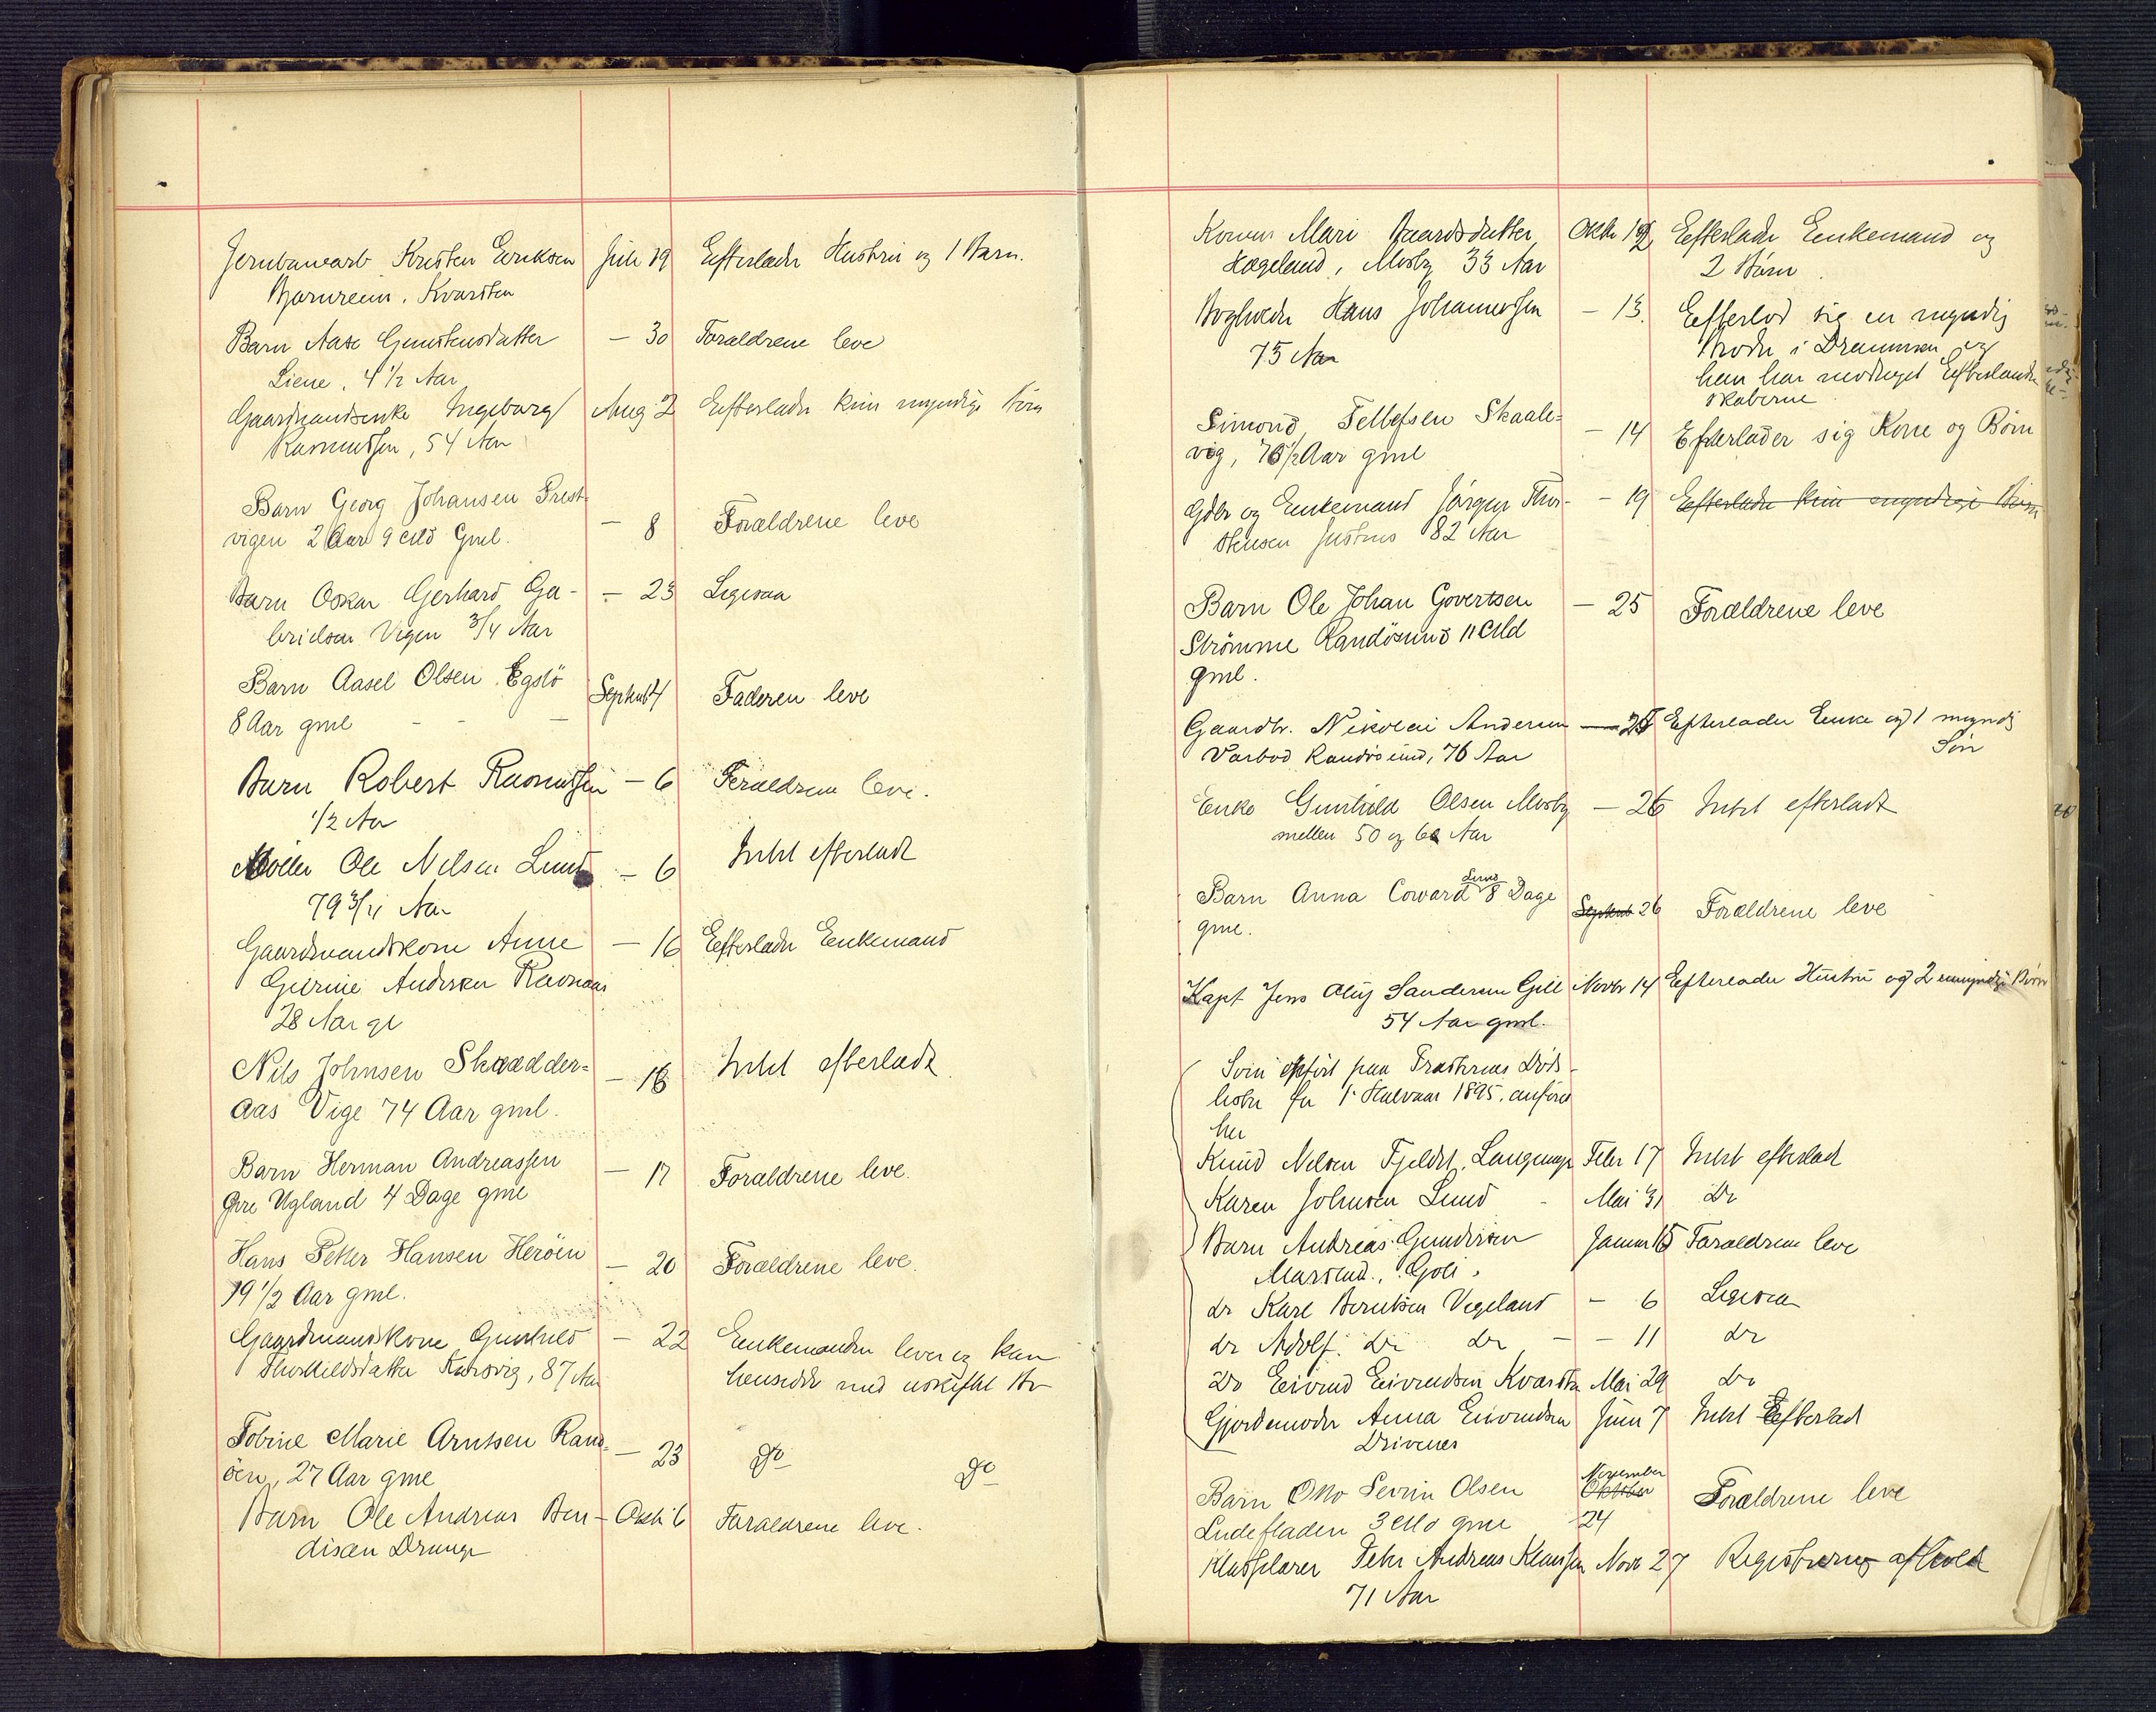 Jernbanearb Kristen Eriksen Juli 19 Efterlader Hustru og 1 Barn.
Kvarsten
Barn Aase Gunstensdatter — 30 Forældrene leve
Liene, 4 1/2 Aar
Gaardmandsenke Ingeborg Aug 2 Efterlader kun myndige Børn
Rasmussen, 54 Aar
Barn Georg Johansen Prest-
vigen 2 Aar 9 Md Gml. — 8 Forældrene leve
Barn Oskar Gerhard Ga- — 23 Ligesaa
brielsen Vigen 3/4 Aar
Barn Aasel Olsen Egslö Septemb 4 Faderen leve
8 Aar gml
Barn Robert Rasmussen — 6 Forældrene leve.
1/2 Aar
Møller Ole Nilsen Lund — 6 Intet efterladt
79 3/4 Aar
Gaardmandskone Anne — 16 Efterlader Enkemand
Gurine Andersen Ravnaas
28 Aar gl
Nils Johnsen Skrædder= — 16 Intet efterladt
aas Vige 74 Aar gml.
Barn Herman Andreassen — 17 Forældrene leve.
Øvre Ugland 4 Dage gml
Hans Petter Hansen Heröen — 20 Forældrene leve.
19 1/2 Aar gml.
Gaardmandskone Gunhild — 22 Enkemanden lever og kan
Thorkildsdatter Korsvig, 87 Aar hensidde med uskiftet Bo
Tobine Marie Arntsen Rand= — 23 do do
öen, 27 Aar gml
Barn Ole Andreas Ben- Oktb 6 Forældrene leve.
disen Drange
Konen Mari Baardsdatter Oktbr 12 Efterlader Enkemand og
Hægeland, Mosby 33 Aar 2 Børn
Bogholder Hans Johannessen — 13. Efterlod sig en myndig
75 Aar Broder i Drammen og
han har modtaget Efterladen
skaberne
Simond Tellefsen Skaale= — 14 Efterlader sig Kone og Børn
vig, 76 1/2 Aar gml
Gdbr og Enkemand Jörgen Thor- — 19 Efterlader kun myndige Børn
stensen Justnes 82 Aar
Barn Ole Johan Govertsen — 25 Forældrene leve
Strömme Randösund 11 Md
gml.
Gaardbr. Nikolai Andersen — 25 Efterlader Enke og 1 myndig
Varbod Randösund, 76 Aar Søn
Enke Gunhild Olsen Mosby — 26 Intet efterladt
mellem 50 og 60 Aar
Barn Anna Coward Lund 8 Dage Septemb 26 Forældrene leve
gml.
Kapt Jens Oluf Sandersen Gill Novbr 14 Efterlader Hustru og 2 umyndige Børn
54 Aar gml.
Som opført paa Presternes Døds-
lister for 1. Halvaar 1895, anføres
her
Knud Nilsen Fjeldst. Langemyr Febr 17 Intet efterladt
Karen Johnsen Lund Mai 31 Do
Barn Andreas Gundersen Januar 15 Forældrene leve
do Karl Berntsen Vegeland — 6 Ligesaa
do Adolf do do — 11 do
Do Eivind Eivindsen Kvarsten Mai 29 do
Gjordemoder Anna Eivindsen Juni 7 Intet Efterlad
Drivenes
Barn Otto Severin Olsen November Oktober Forældrene leve
Ludefladen 3 Md gml 24
Klokker Peter Andreas Klausen Novb 27 Registrering afholdt
71 Aar